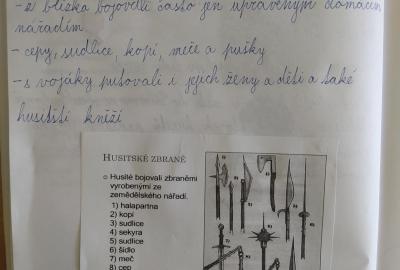 - z blízka bojovali často jen upraveným domácím
nářadím
- cepy, sudlice, kopí, meče a pušky
- s vojáky putovali i jejich ženy a děti a také
husitští kněží
HUSITSKÉ ZBRANĚ
Husité bojovali zbraněmi
vyrobenými ze
zemědělského nářadí.
1) halapartna
2) kopí
3) sudlice
4) sekyra
5) sudlice
6) šídlo
7) meč
8) cep